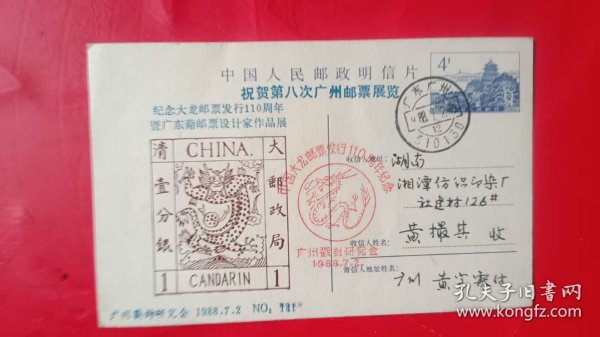 中国人民邮政明信片
4分
祝贺第八次广州邮票展览
纪念大龙邮票发行110周年
暨广东籍邮票设计家作品展
广东广州
12
510130
清 CHINA. 大
壹分銀
郵政局
1 CANDARIN 1
中国大龙邮票发行110周年纪念
广州戳封研究会
1988.7.2
收信人地址:
湖南
湘潭纺织印染厂
社建村126#
收信人姓名:
黄 其 收
寄信人地址姓名:
广州 黄 付
广州 研究会 1988.7.2 NO:
孔夫子旧书网
www.kongfz.com